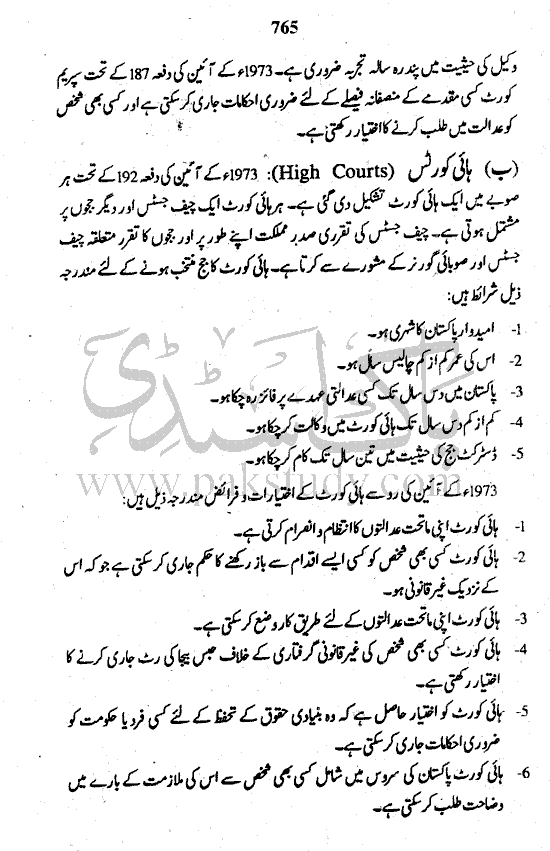 765
وکیل کی حیثیت میں پندرہ سالہ تجربہ ضروری ہے۔ 1973ء کے آئین کی دفعہ 187 کے تحت سپریم
کورٹ کسی مقدمے کے منصفانہ فیصلے کے لئے ضروری احکامات جاری کر سکتی ہے اور کسی بھی شخص
کو عدالت میں طلب کرنے کا اختیار رکھتی ہے۔
(ب) ہائی کورٹس (High Courts): 1973ء کے آئین کی دفعہ 192 کے تحت ہر
صوبے میں ایک ہائی کورٹ تشکیل دی گئی ہے۔ ہر ہائی کورٹ ایک چیف جسٹس اور دیگر ججوں پر
مشتمل ہوتی ہے۔ چیف جسٹس کی تقرری صدر مملکت اپنے طور پر اور ججوں کا تقرر متعلقہ چیف
جسٹس اور صوبائی گورنر کے مشورے سے کرتا ہے۔ ہائی کورٹ کا جج منتخب ہونے کے لئے مندرجہ
ذیل شرائط ہیں:
1- امیدوار پاکستان کا شہری ہو۔
2- اس کی عمر کم از کم چالیس سال ہو۔
3- پاکستان میں دس سال تک کسی عدالتی عہدے پر فائز رہ چکا ہو۔
4- کم از کم دس سال تک ہائی کورٹ میں وکالت کر چکا ہو۔
5- ڈسٹرکٹ جج کی حیثیت میں تین سال تک کام کر چکا ہو۔
پاک سٹڈی
www.pakstudy.com
1973ء کے آئین کی رو سے ہائی کورٹ کے اختیارات و فرائض مندرجہ ذیل ہیں:
1- ہائی کورٹ اپنی ماتحت عدالتوں کا انتظام و انصرام کرتی ہے۔
2- ہائی کورٹ کسی بھی شخص کو کسی ایسے اقدام سے باز رکھنے کا حکم جاری کر سکتی ہے جو کہ اس
کے نزدیک غیر قانونی ہو۔
3- ہائی کورٹ اپنی ماتحت عدالتوں کے لئے طریق کار وضع کر سکتی ہے۔
4- ہائی کورٹ کسی بھی شخص کی غیر قانونی گرفتاری کے خلاف حبس بیجا کی رٹ جاری کرنے کا
اختیار رکھتی ہے۔
5- ہائی کورٹ کو اختیار حاصل ہے کہ وہ بنیادی حقوق کے تحفظ کے لئے کسی فرد یا حکومت کو
ضروری احکامات جاری کر سکتی ہے۔
6- ہائی کورٹ پاکستان کی سروس میں شامل کسی بھی شخص سے اس کی ملازمت کے بارے میں
وضاحت طلب کر سکتی ہے۔